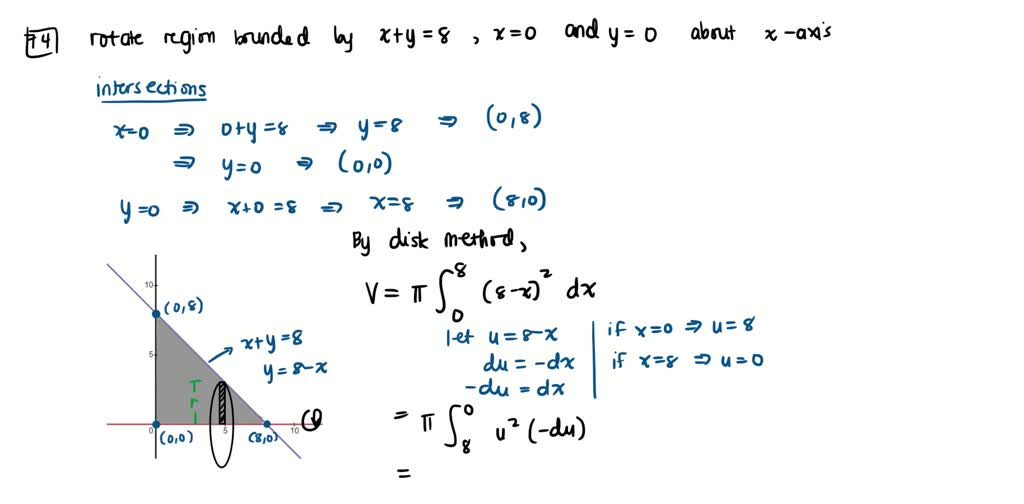 74 rotate region bounded by x+y=8, x=0 and y=0 about x-axis
intersections
x=0 ⇒ 0+y=8 ⇒ y=8 ⇒ (0,8)
⇒ y=0 ⇒ (0,0)
y=0 ⇒ x+0=8 ⇒ x=8 ⇒ (8,0)
By disk method,
V = π ∫₀⁸ (8-x)² dx
let u = 8-x | if x=0 ⇒ u=8
du = -dx | if x=8 ⇒ u=0
-du = dx
= π ∫₈⁰ u² (-du)
=
10
(0,8)
x+y=8
y=8-x
5
r
0
(0,0)
5
(8,0)
10